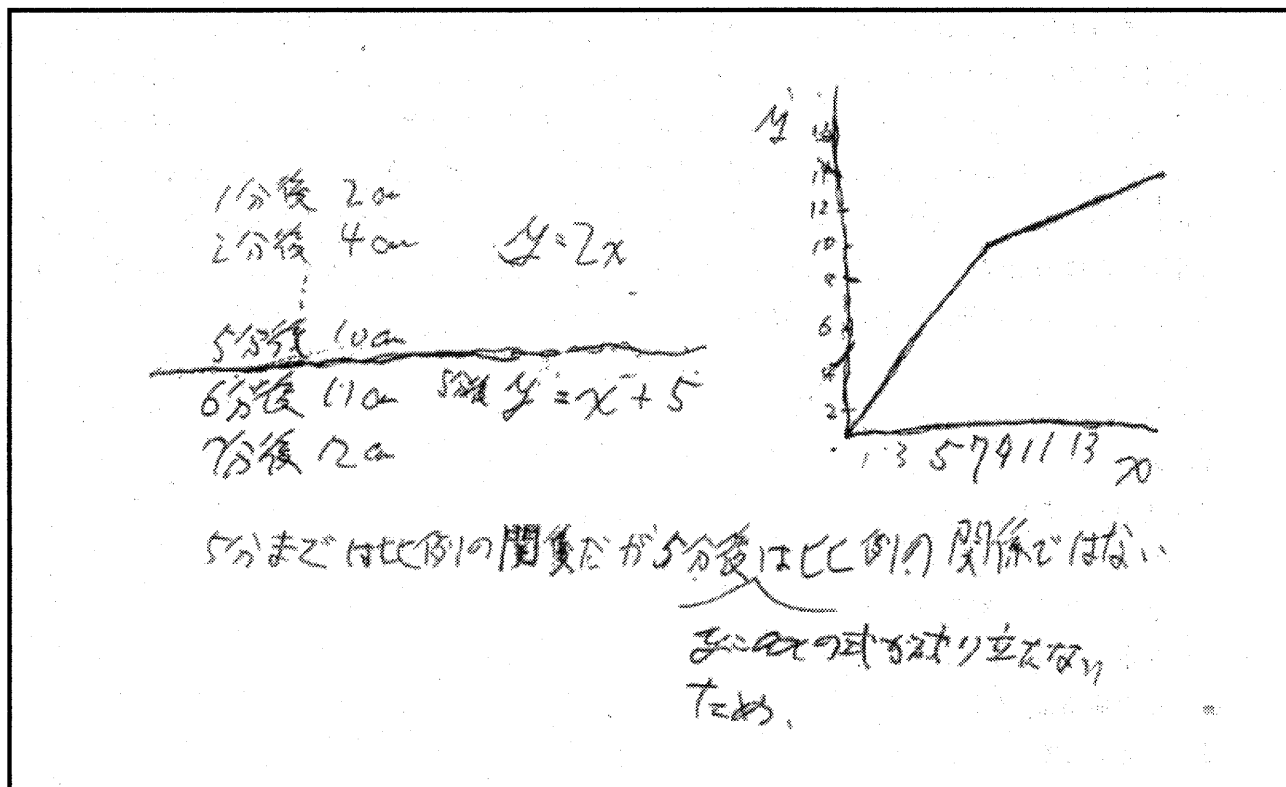 1分後 2cm
2分後 4cm
y=2x
5分後 10cm
6分後 11cm
5分後 y=x+5
7分後 12cm
y
16
14
12
10
8
6
4
2
1 3 5 7 9 11 13 x
5分までは比例の関係だが5分後は比例の関係ではない
y=axの式が成り立たない
ため、